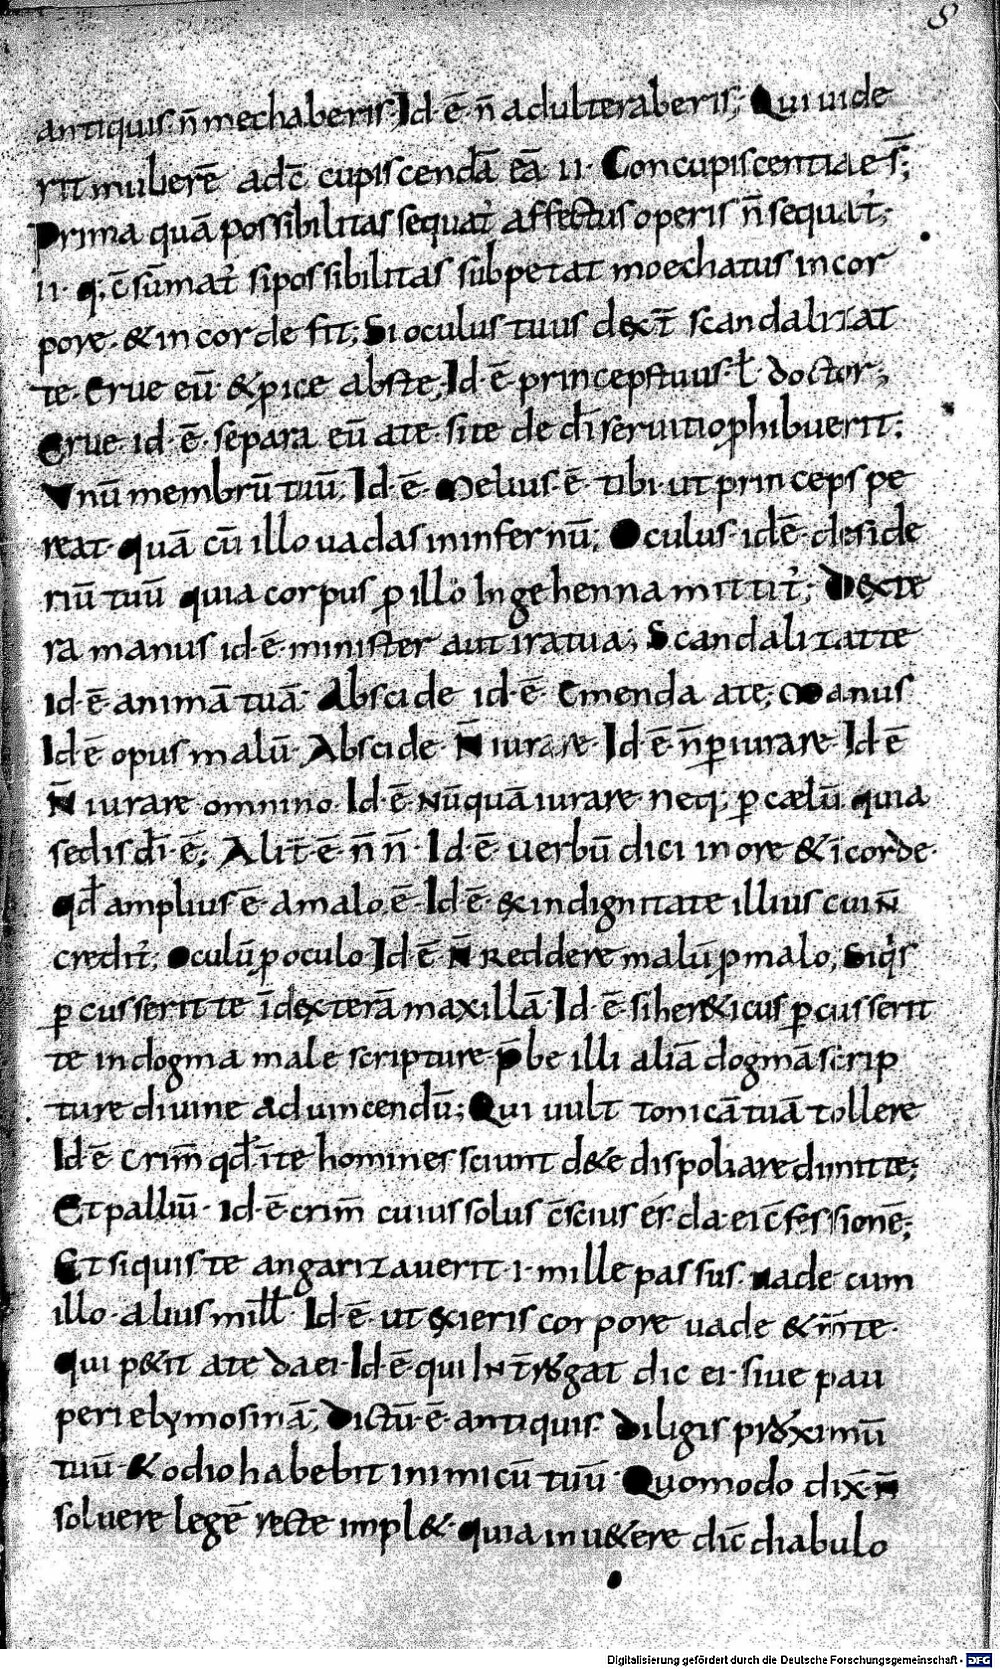 8
antiquis· n̄ mechaberis; Id·ē· n̄ adulteraberis; Qui uide
rit mulierē ad c̄cupiscendā eā ·II· Concupiscentiae s̄;
Prima quā possibilitas sequat᷑ affectus operis n̄ sequat᷑;
·II· q; c̄sūmat᷑ si possibilitas subpetat moechatus in cor
pore· & in corde fit; Si oculus tuus dext̄ scandalizat
te· Erue eū & ꝓice abs te; Id·ē· princeps tuus· ł doctor;
Erue id·ē· separa eū a te· si te de dī seruitio ꝓhibuerit;
Vnū membrū tuū; Id·ē· Melius·ē· tibi ut princeps pe
reat· quā cū illo uadas in infernū; Oculus· id·ē· deside
riū tuū quia corpus ꝑ illō In gehenna mittit᷑; Dexte
ra manus id·ē· minister aut ira tua; Scandalizat te
Id·ē· animā tuā· Abscide id·ē· Emenda a te; Manus
Id·ē opus malū· Abscide· N̄ iurare· Id·ē n̄ ꝑiurare· Id·ē
N̄ iurare omnino· Id·ē· Nūquā iurare· neq; ꝑ cælū quia
sedis dī·ē·; Alit̄·ē· n̄ n̄· Id·ē uerbū dici in ore & ī corde·
qđ amplius·ē· a malo·ē· Id·ē· & indignitate illius cui n̄
credit᷑; Oculū ꝓ oculo· Id·ē· N̄ Reddere malū ꝓ malo; Siqͥs
ꝑcusserit te ī dexterā maxillā· Id·ē· si her&icus ꝑcusserit
te in dogma male scripture· p̄be illi aliā dogmā scrip
ture diuine ad uincendū; Qui uult tonicā tuā tollere
Id·ē· Crim̄ qđ ī te homines sciunt d&e dispoliare dimitte;
Et palliū· Id·ē crim̄ cuius solus c̄scius es· da ei c̄fessionē;
Et si quis te angarizauerit ·I· mille passus· uade cum
illo· alius mill̄· Id·ē· ut exieris corpore uade & m̄te·
Qui p&it a te da ei· Id·ē· qui Int̄rogat dic ei· siue pau
peri elymosinā; Dictū·ē· antiquis· Diligis proximū
tuū· & odio habebit inimicū tuū· Quomodo dix̄· n̄
soluere legē recte impl&· quia in u&ere dic̄ diabulo
Digitalisierung gefördert durch die Deutsche Forschungsgemeinschaft - DFG